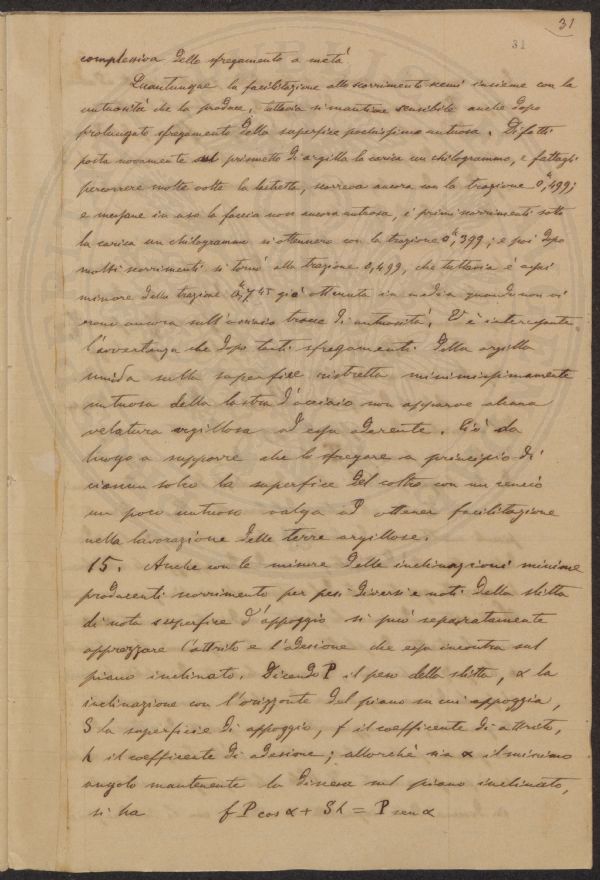 31
31
complessiva dello sfregamento a metà
Quantunque la facilitazione allo scorrimento scemi insieme con la
untuosità che la produce, tuttavia si mantiene sensibile anche dopo
prolungato sfregamento della superficie pochissimo untuosa. Difatti
posta novamente sul prismetto di argilla la carica un chilogrammo, e fattagli
percorrere molte volte la lastretta, scorreva ancora con la trazione 0,k499;
e messane in uso la faccia non ancora untuosa, i primi scorrimenti sotto
la carica un chilogrammo si ottennero con la trazione 0,k399; e poi dopo
molti scorrimenti si tornò alla trazione 0,499, che tuttavia è assai
minore della trazione 0,k745 già ottenuta in media quando non vi
erano ancora sull'acciaio tracce di untuosità. Ed è interessante
l'avvertenza che dopo tanti sfregamenti della argilla
umida sulla superficie ristretta minimissimamente
untuosa della lastra d'acciaio non apparve alcuna
velatura argillosa ad essa aderente. Ciò dà
luogo a supporre che lo sfregare a principio di
ciascun solco la superficie del coltro con un cencio
un poco untuoso valga ad ottener facilitazione
nella lavorazione delle terre argillose.
15. Anche con le misure delle inclinazioni minime
producenti scorrimento per pesi diversi e noti della slitta
di nota superficie d'appoggio si può separatamente
apprezzare l'attrito e l'adesione che essa incontra sul
piano inclinato. Dicendo P il peso della slitta, α la
inclinazione con l'orizzonte del piano su cui appoggia,
S la superficie di appoggio, f il coefficente di attrito,
h il coefficente di adesione; allorchè sia α il minimo
angolo mantenente la discesa sul piano inclinato,
si ha f P cos α + S h = P sen α